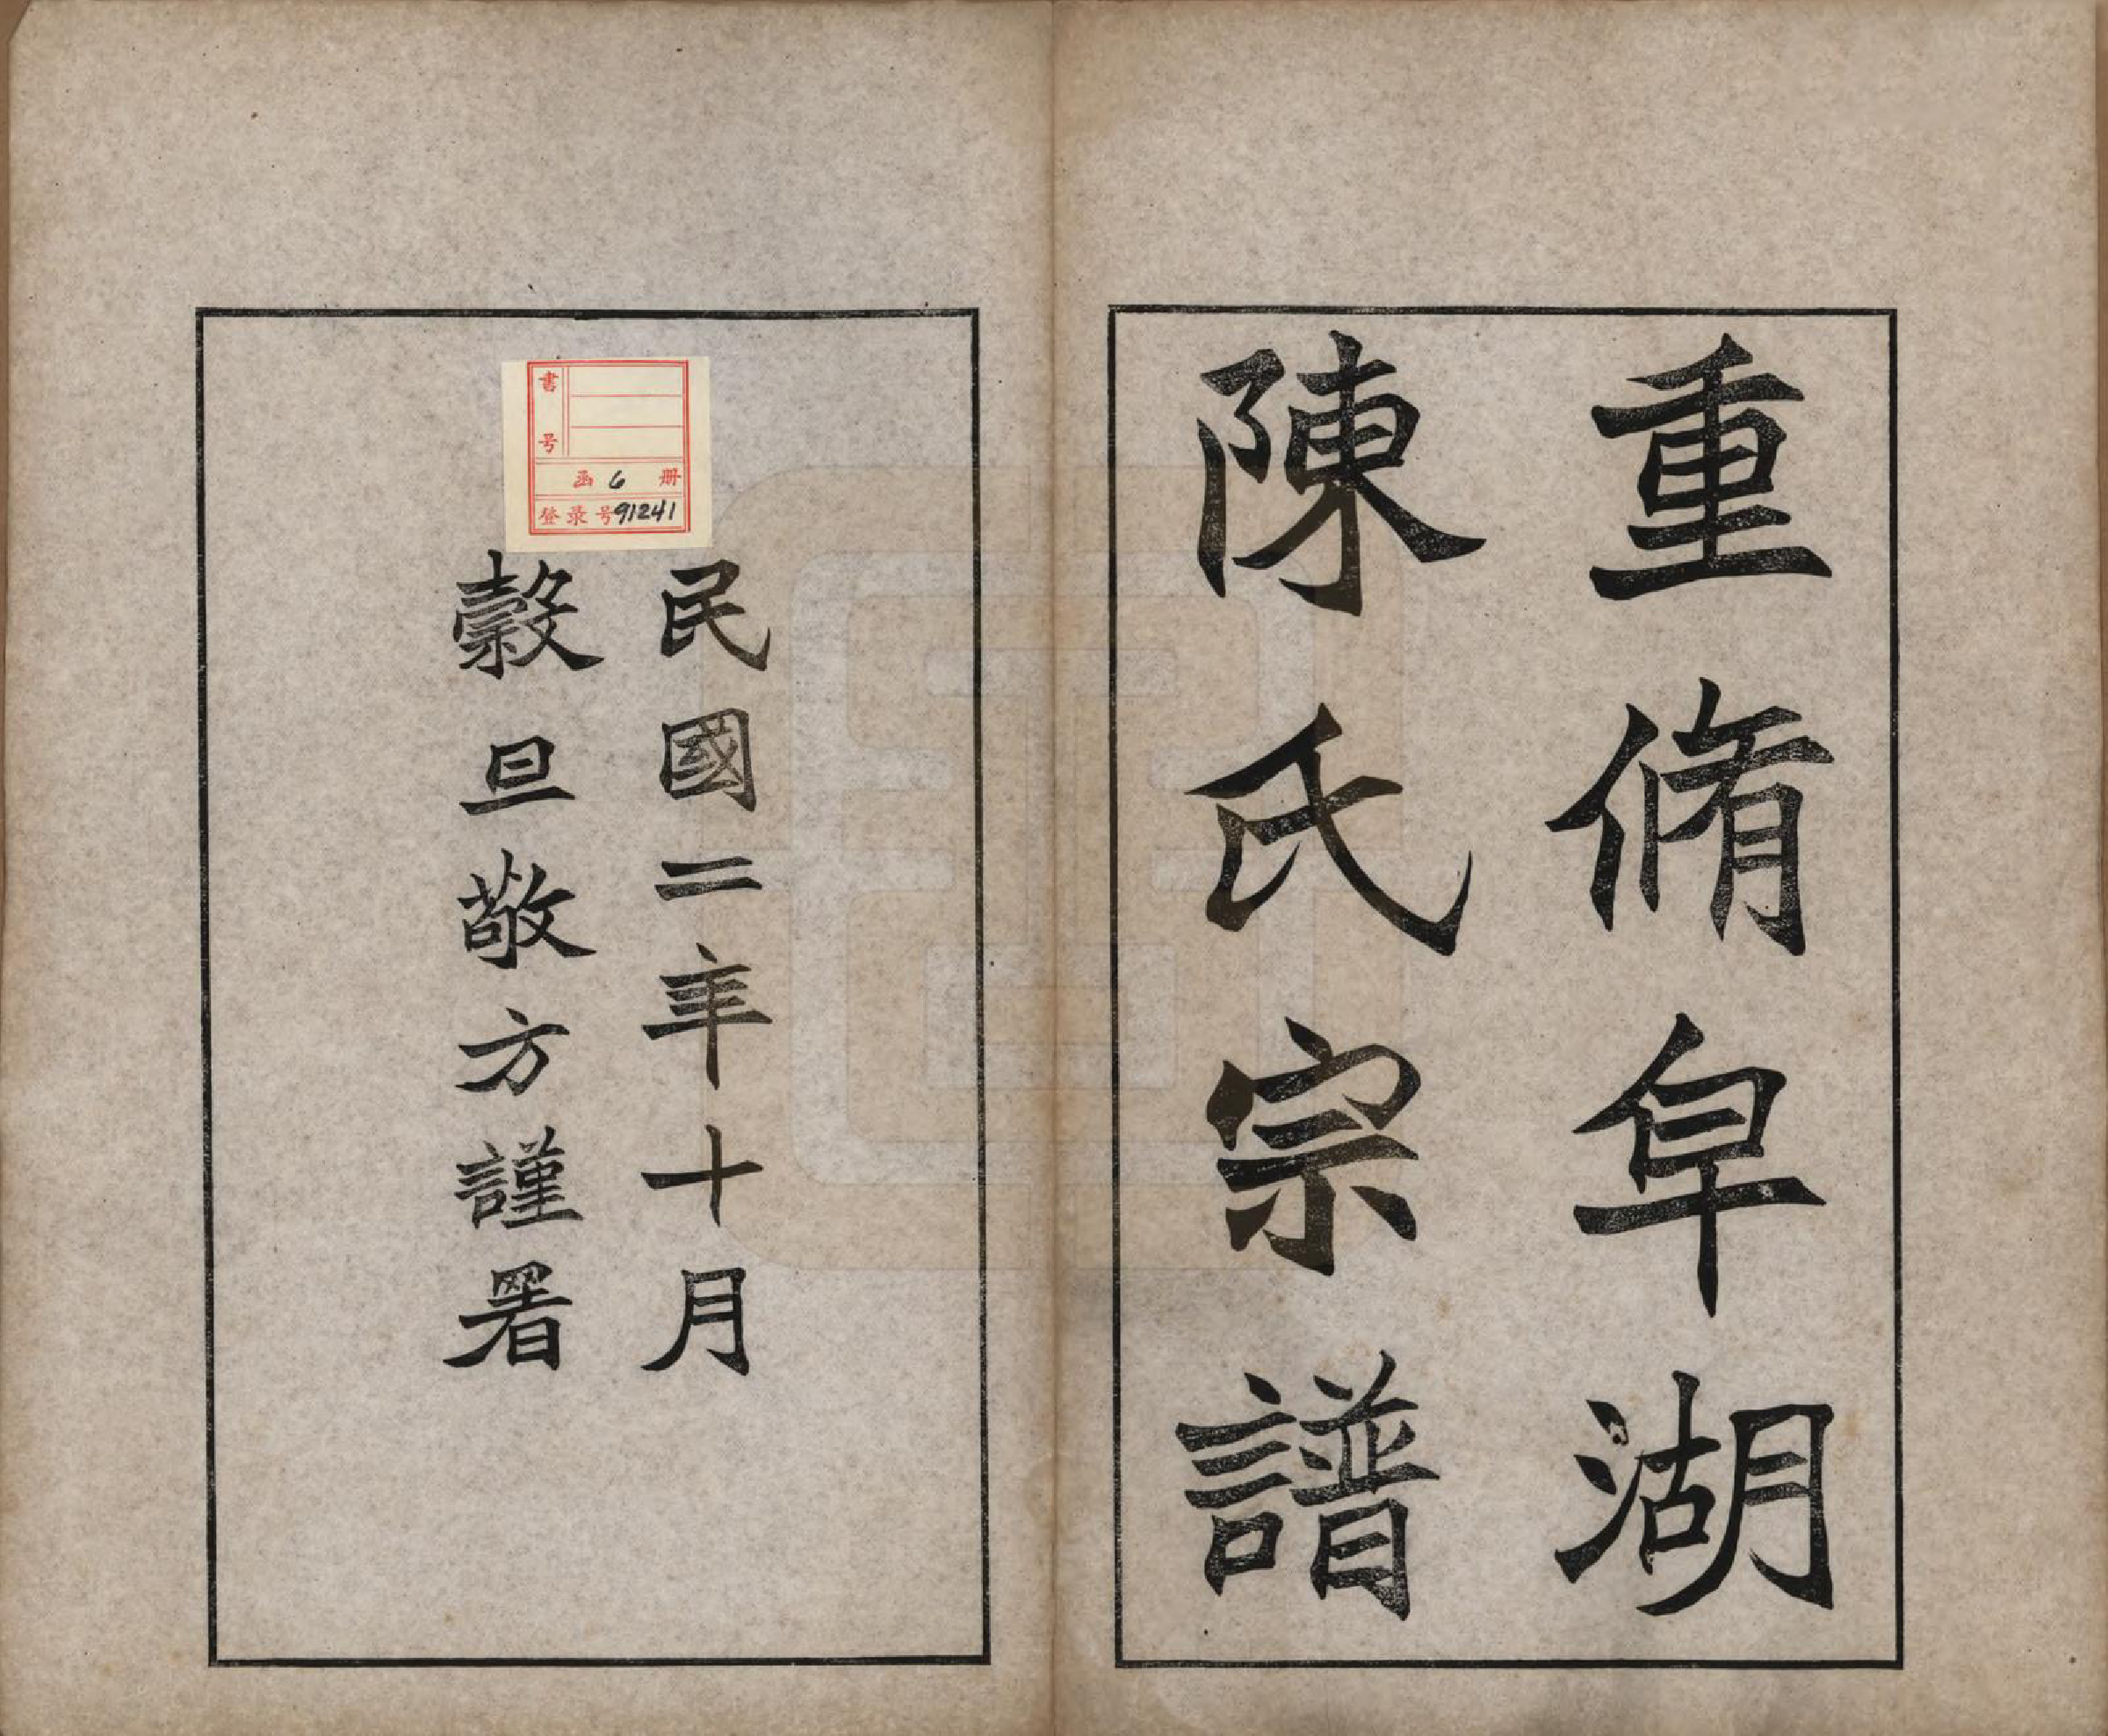 重脩阜湖
陳氏宗譜
民國二年十月
穀旦敬方謹署
書号
函 6 册
登录号91241